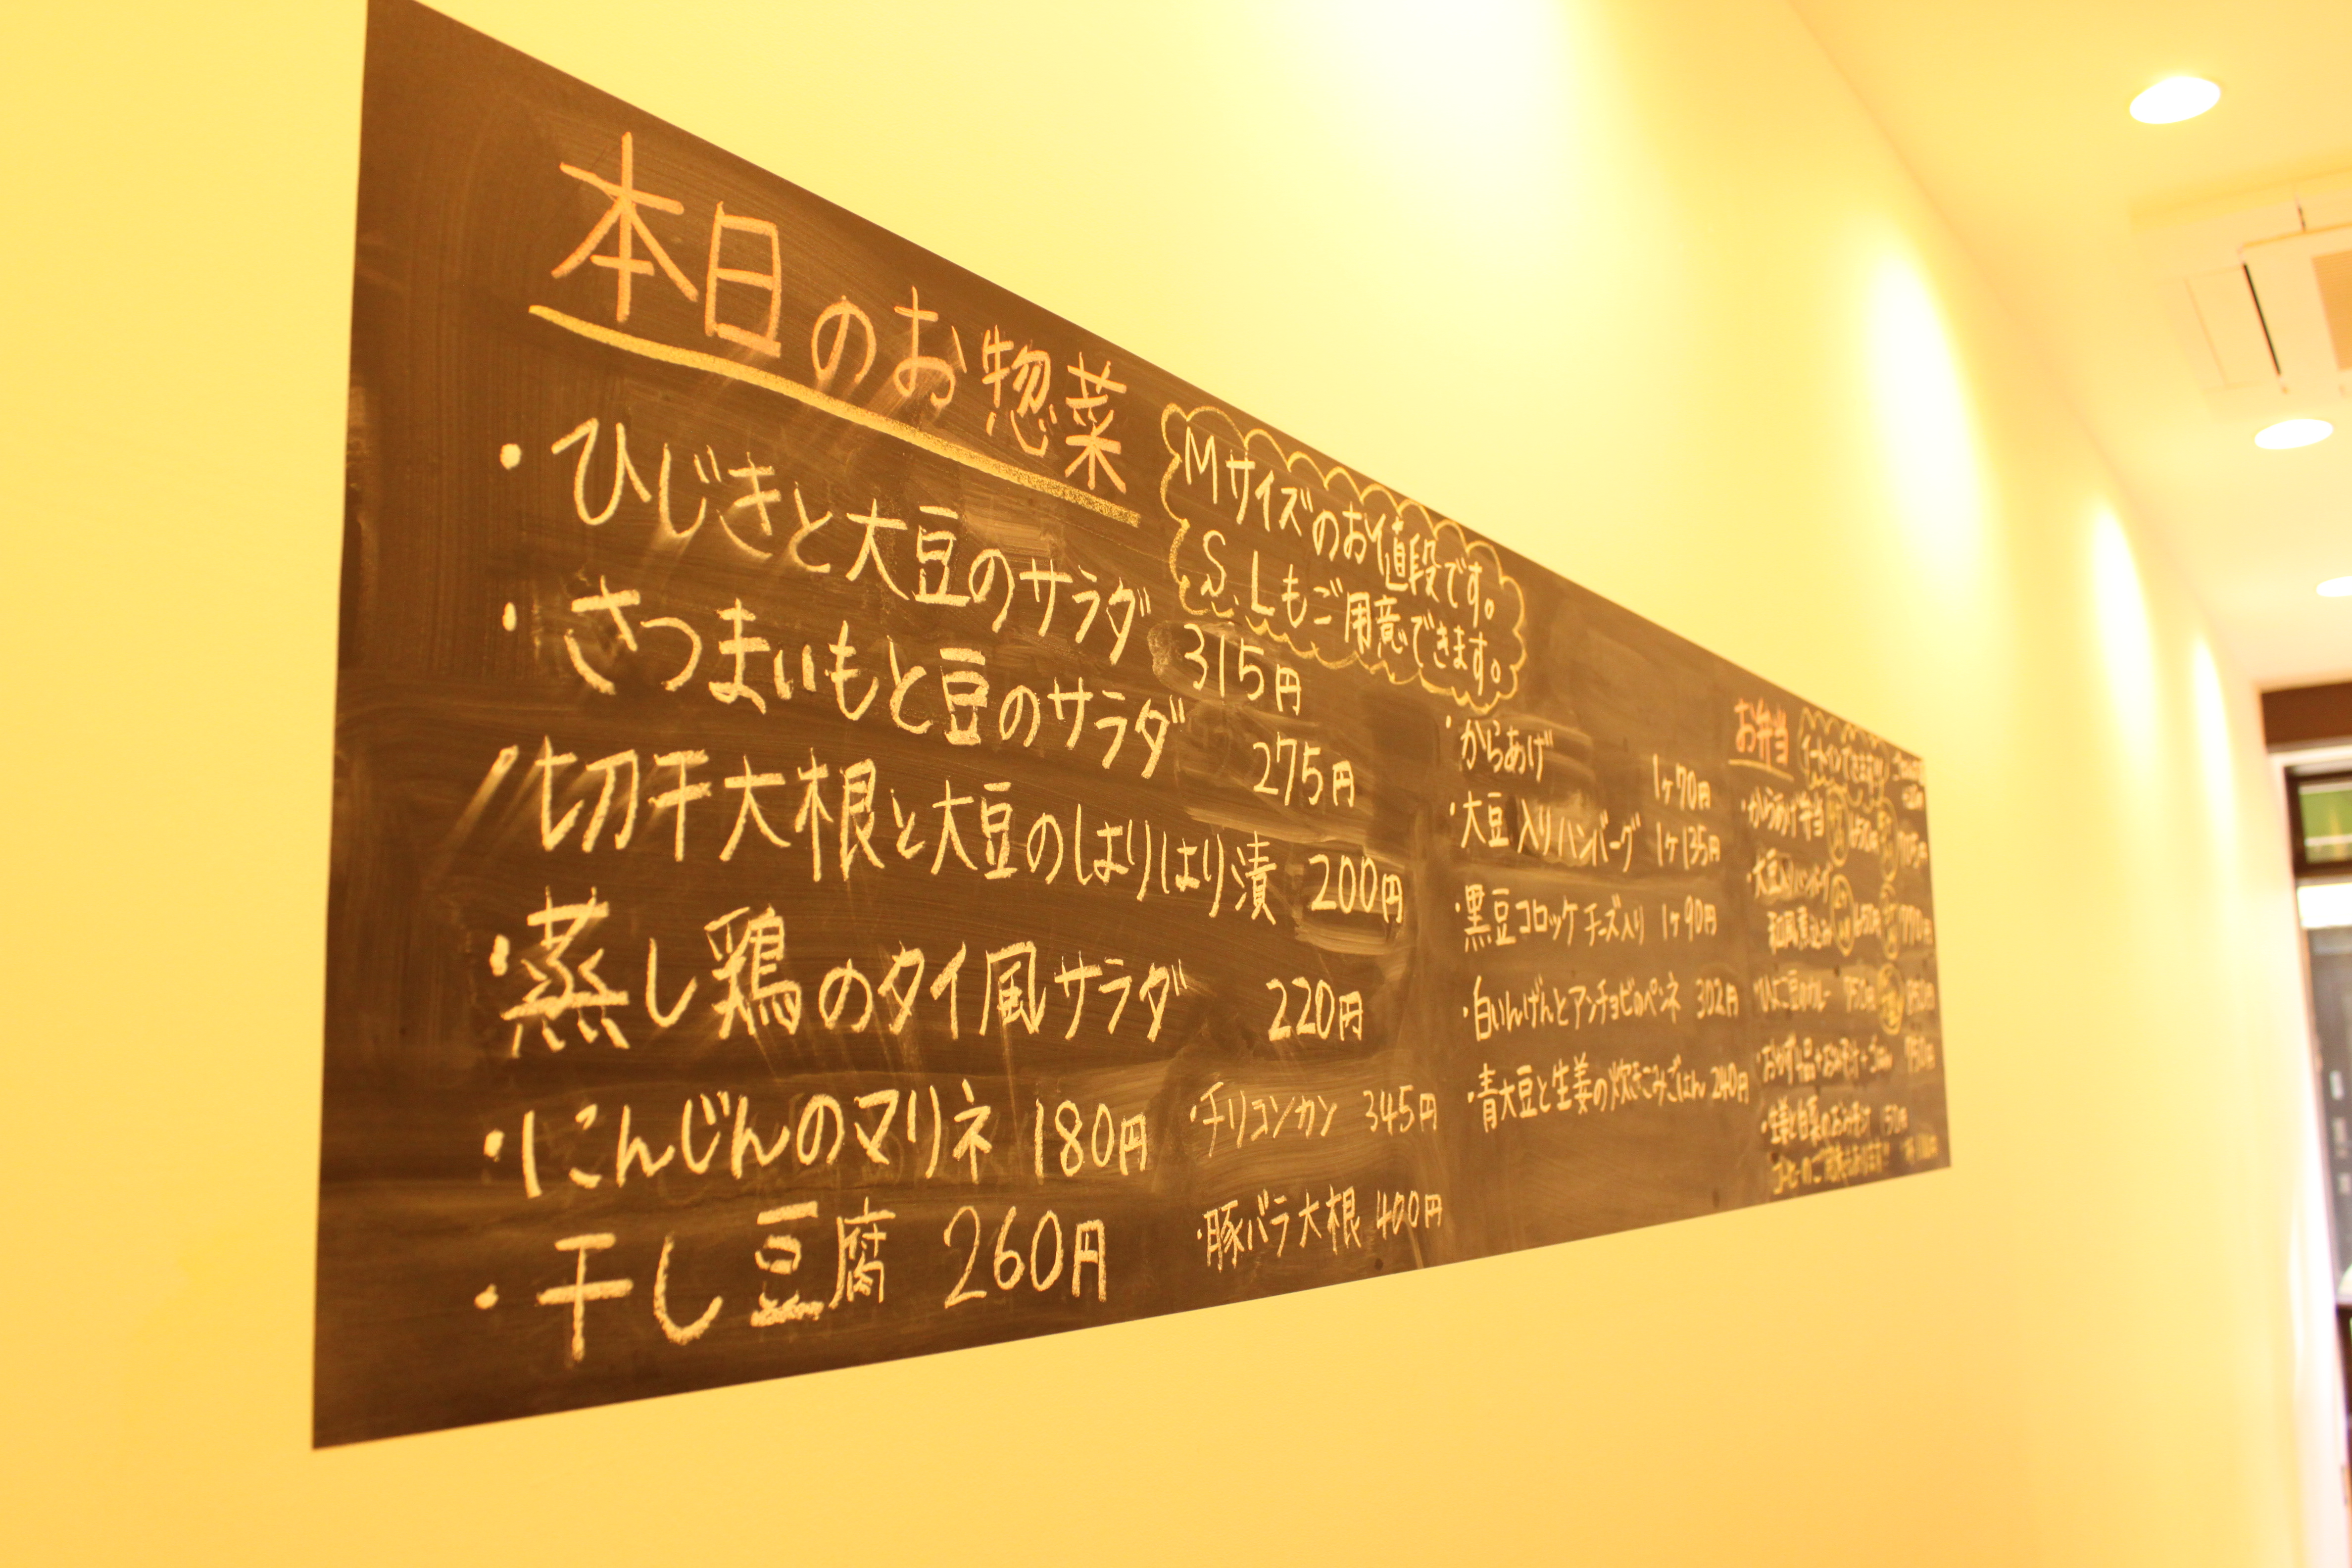 本日のお惣菜
Mサイズのお値段です。
S、Lもご用意できます。
・ひじきと大豆のサラダ 315円
・さつまいもと豆のサラダ 275円
・切干大根と大豆のはりはり漬 200円
・蒸し鶏のタイ風サラダ 220円
・にんじんのマリネ 180円
・干し豆腐 260円
・チリコンカン 345円
・豚バラ大根 400円
・からあげ 1ヶ70円
・大豆入りハンバーグ 1ヶ135円
・黒豆コロッケチーズ入り 1ヶ90円
・白いんげんとアンチョビのペンネ 302円
・青大豆と生姜の炊きこみごはん 240円
お弁当
・からあげ弁当
・大豆入りハンバーグ
和風煮込み
・ひよこ豆のカレー
・生姜と白菜のおみそ汁 150円